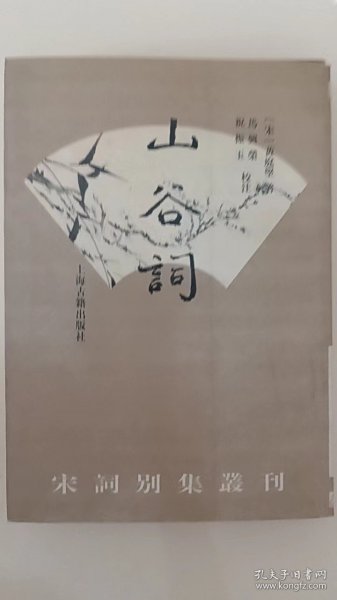 山谷詞
〔宋〕黄庭堅 著
馬興榮
祝振玉 校注
上海古籍出版社
宋詞别集叢刊
孔夫子旧书网